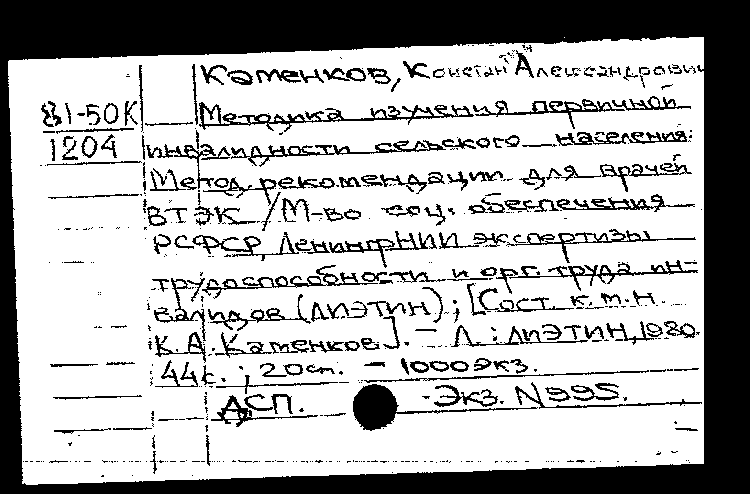 Каменков, Констан^тин Александрович
81-50К
Методика изучения первичной
1204
инвалидности сельского населения:
Метод. рекомендации для врачей
ВТЭК / М-во соц. обеспечения
РСФСР, ЛенингрНИИ экспертизы
трудоспособности и орг. труда ин-
валидов (ЛИЭТИН); [Сост. к.м.н.
К.А. Каменков]. - Л.: ЛИЭТИН, 1980.
44с.; 20см. - 1000экз.
ДСП. -Экз. N995.